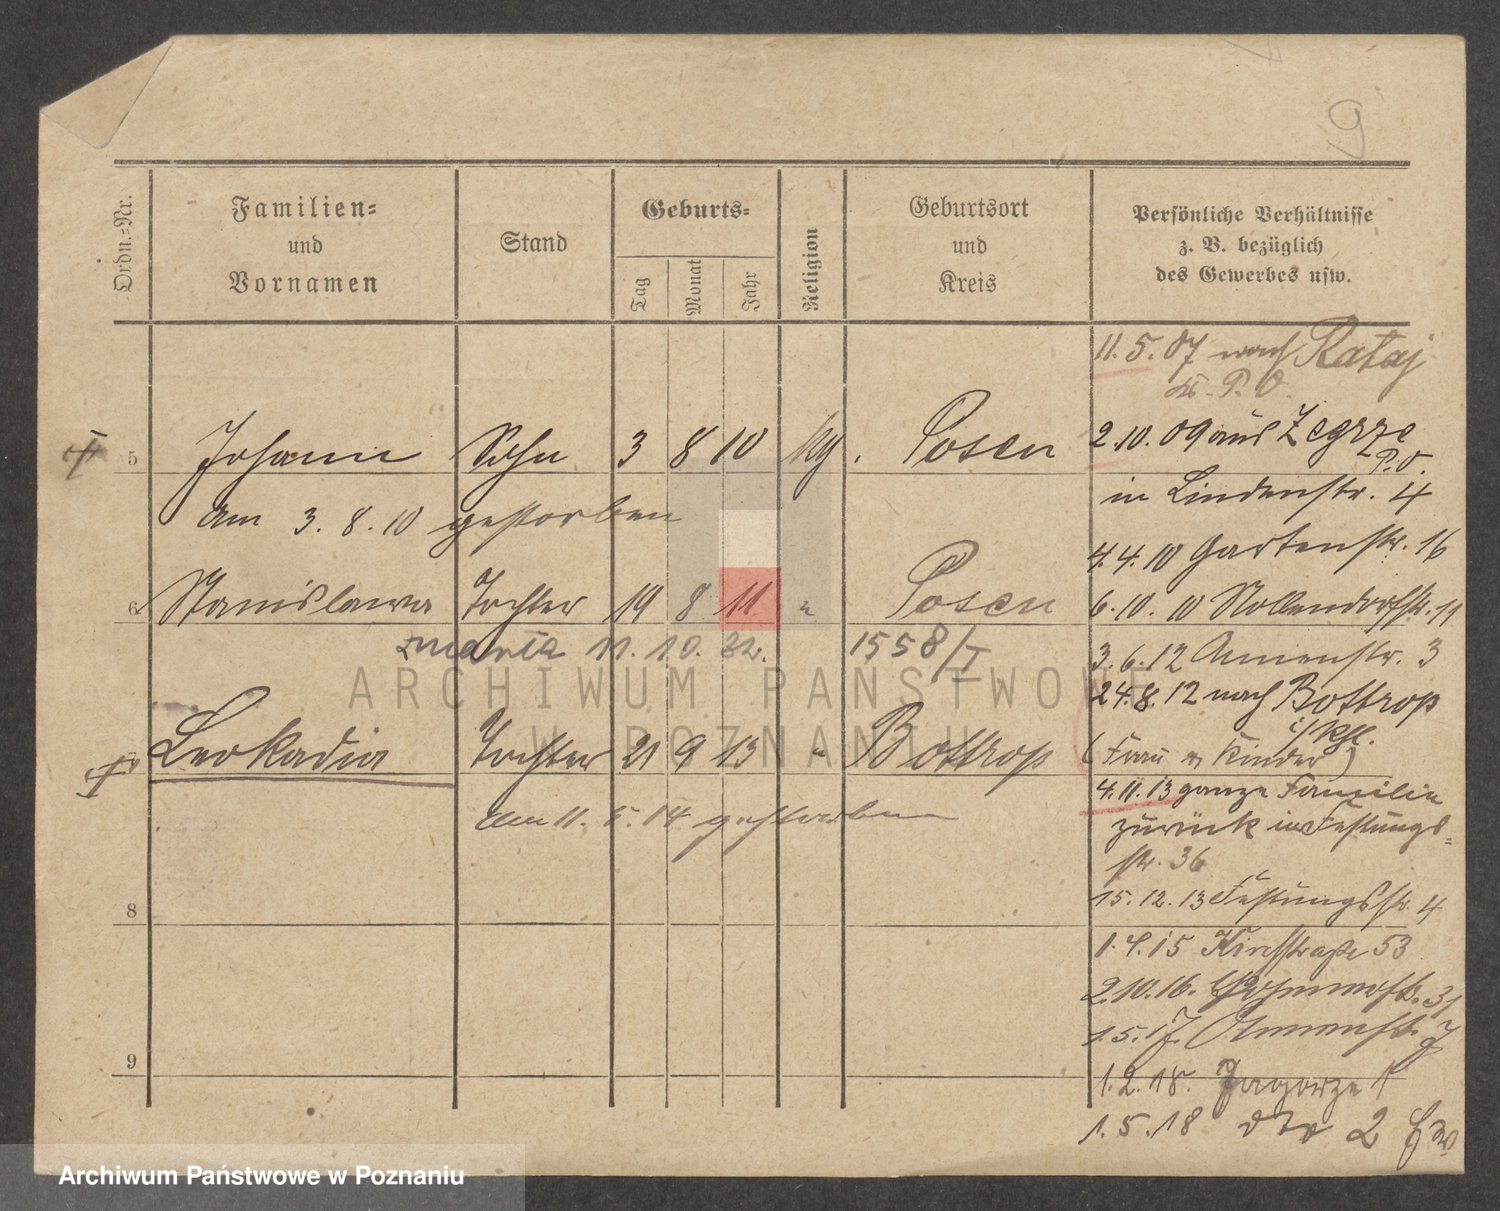 9
Ordn.-Nr.
Familien-
und
Vornamen
Stand
Geburts-
Tag
Monat
Jahr
Religion
Geburtsort
und
Kreis
Persönliche Verhältnisse
z. B. bezüglich
des Gewerbes usw.
11. 5. 07 nach Rataj
P. O.
5 Johann Sohn 3 8 10 kg. Posen
am 3. 8. 10 gestorben
6 Stanislawa Tochter 19 8 11 " Posen
11. 10. 32. 1558/I
Leokadia Tochter 21 9 13 " Bottrop
am 11. 5. 14 gestorben
8
9
2. 10. 09 aus Zegrze
P. O.
in Lindenstr. 4
4. 4. 10 Gartenstr. 16
6. 10. 10 Nollendorfstr. 11
3. 6. 12 Annenstr. 3
24. 8. 12 nach Bottrop
(Frau u Kinder)
4. 11. 13 ganze Familie
zurück in Festungs-
str. 36
15. 12. 13 Festungsstr. 4
1. 4. 15 53
2. 10. 16. 31
1. 5. 17. Annenstr. 7
1. 2. 18. Zagorze 1
1. 5. 18 dto 2
ARCHIWUM PAŃSTWOWE
W POZNANIU
Archiwum Państwowe w Poznaniu